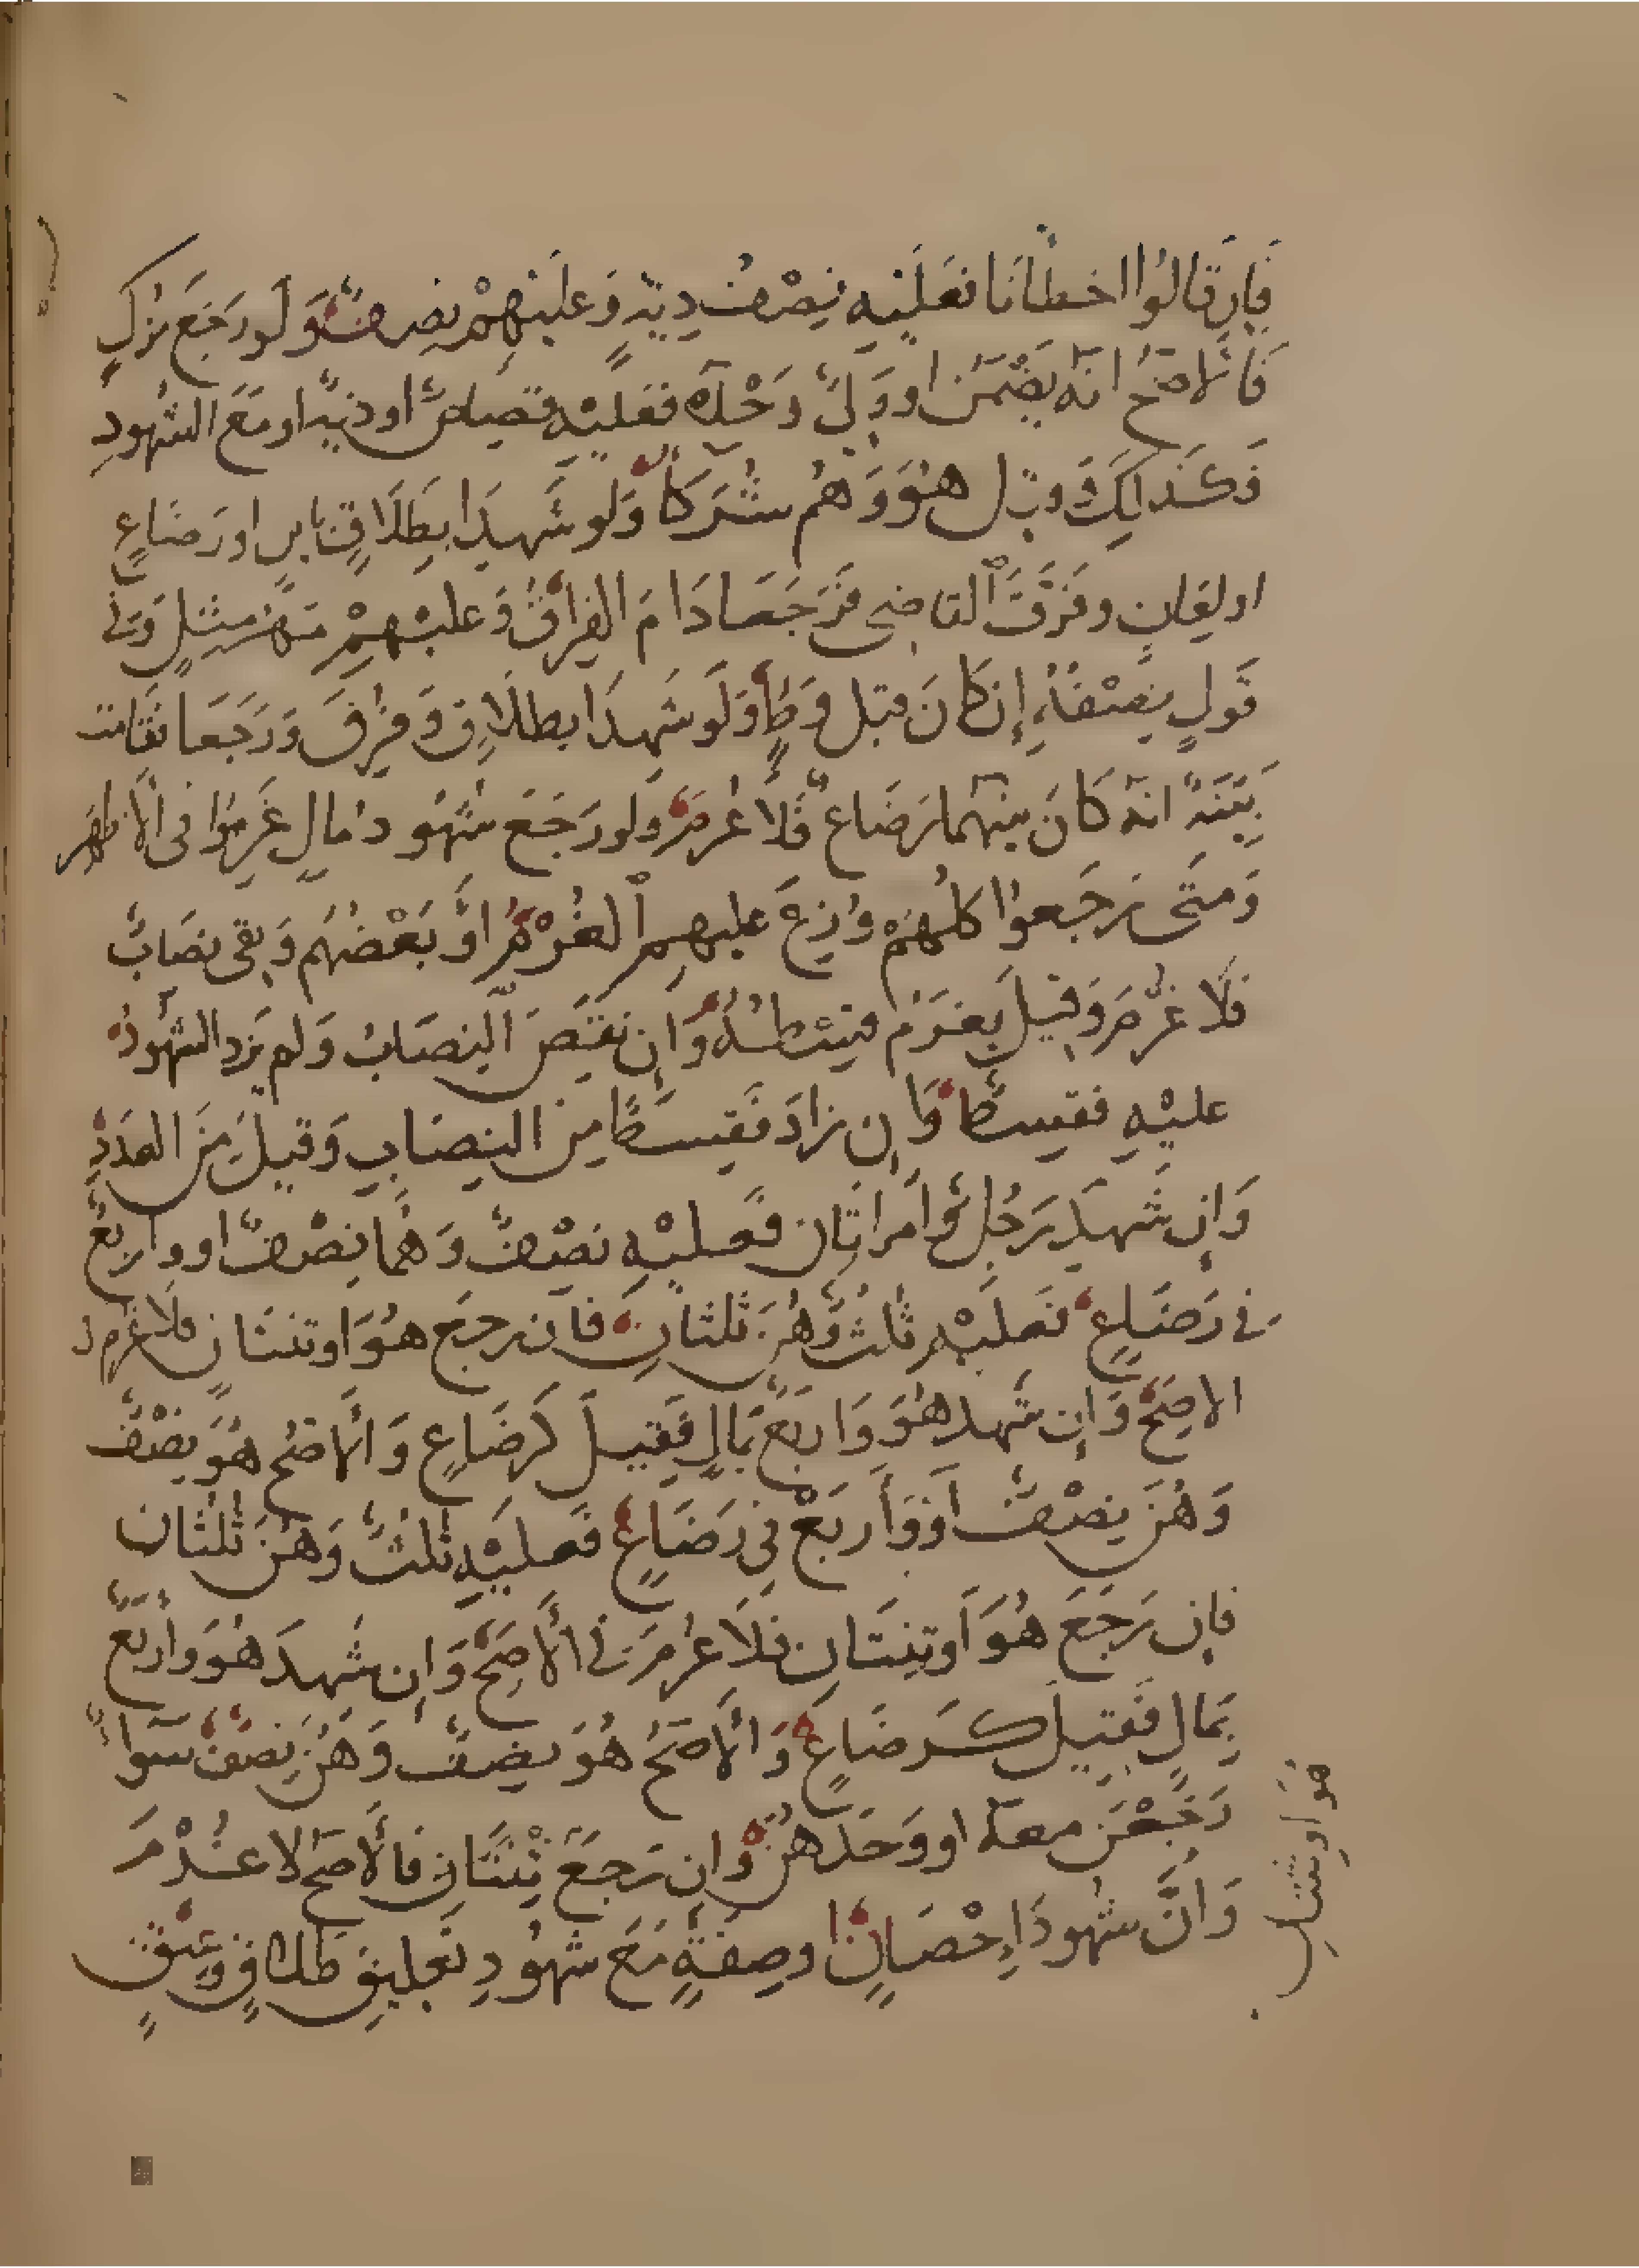 فَاِن قَالُوا اخطَانَا فَعَلَيْهِ نِصْفُ دِيَةٍ وَعَلَيْهِمْ نِصفٌ وَلَو رَجَعَ مُزَكٍ
فَالاَصَحُ انَّه يَضْمَن او وَلِىٌّ وَحْدَهٗ فَعَليْهِ قِصَاصٌ او دِيَةٌ او مَعَ الشُهودِ
فَكَذَالِكَ وَقِيل هُوَ وَهُم شُرَكَاُ وَلو شَهِدَا بِطَلَاقٍ بَاينٍ او رَضَاعٍ
او لِعَانٍ وَفَرَّقَ القَاضِى فَرَجَعَا دَامَ الفِرَاقُ وَعليْهِمْ مَهْرُ مِثلٍ وَفى
قَولٍ نِصْفُهُ إِن كَانَ قبل وَطْىٍ وَلَو شَهِدَا بطلَاقٍ وَفُرِّقَ وَرَجَعَا فَقَامَت
بَيِّنَةٌ انَّهُ كَانَ بينهمَا رَضَاعٌ فَلَا غُرْمَ وَلو رَجَعَ شُهُودُ مَالٍ غَرِمُوا فى الاَظهَرِ
وَمَتَى رَجَعوا كلُهُمْ وُزِعَ عليهِم الغُرْمُ اَوْ بَعْضُهُم وَبَقى نِصَابٌ
فلَا غُرْمَ وَقِيلَ يَغْرَمُ قِسْطَهُ وَاِن نَقَصَ النِصَابُ وَلم يَزِد الشهُودُ
عليْهِ فقِسطٌ وَاِن زَادَ فَقِسطٌ مِنَ النِصَابِ وَقِيلَ مِنَ العَدَدِ
وَاِن شَهِدَ رَجُلٌ وَامرَاتَان فَعليْهِ نصْفٌ وَهُمَا نِصْفٌ او وَاربعٌ
فى رَضَاعٍ فَعَليْهِ ثلثٌ وَهُنَ ثلثانِ فَاِن رجعَ هُوَ او ثنتَانِ فلَا غرم فى
الاصَحِّ وَاِن شَهِدَ هُوَ وَاربَعٌ بمَالٍ فَقِيلَ كَرضَاعٍ وَالاَصَحُ هُوَ نِصْفٌ
وَهُنَ نِصْفٌ اَوْ وَاَربَعٌ فى رَضَاعٍ فَعليْهِ ثلثٌ وَهُنَ ثلثَان
فاِن رَجَعَ هُوَ اَو ثنتَانِ فلَا غُرمَ فى الاَصَحِّ وَاِن شهِدَ هُوَ وَاربَعٌ
بمَالٍ فَقِيلَ كَرَضَاعٍ وَالاَصَحُ هُوَ نِصفٌ وَهُنَ نِصفٌ سَوَاءٌ
رَجَعْنَ مَعَهُ او وَحدَهُنَّ وَاِن رَجَعَ ثِنْتَانِ فَالاَصَحُ لا غُرْمَ
وَاَنَّ شهُودَ اِحْصَانٍ او صِفَةٍ مَعَ شهُودِ تَعليقِ طلَاقٍ وَعِتقٍ
هُوَ او ثنتان